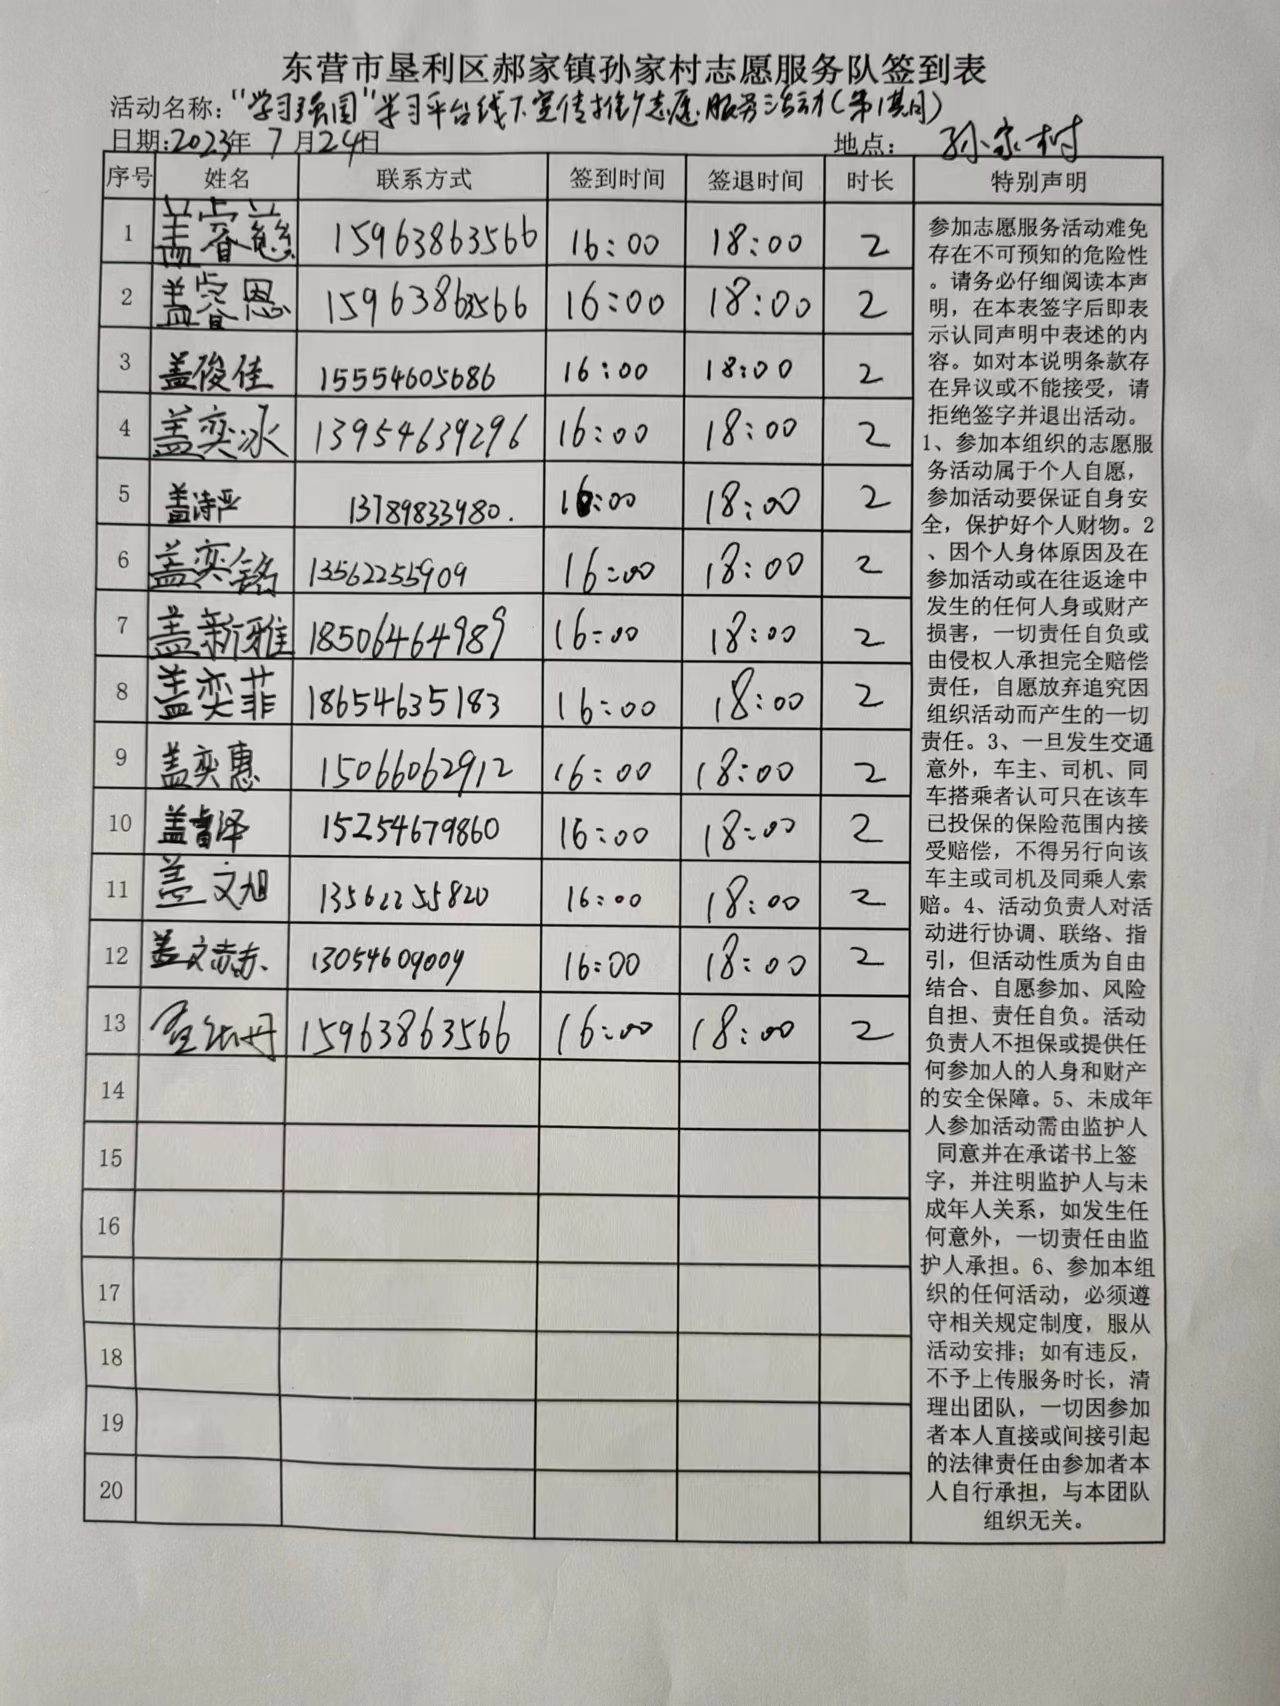 东营市垦利区郝家镇孙家村志愿服务队签到表
活动名称:“学习强国”学习平台线下宣传推广志愿服务活动(第1期)
日期:2023年7月24日 地点: 孙家村
序号 姓名 联系方式 签到时间 签退时间 时长 特别声明
1 盖睿慈 15963863566 16:00 18:00 2
2 盖睿恩 15963863566 16:00 18:00 2
3 盖俊佳 15554605686 16:00 18:00 2
4 盖奕冰 13954639296 16:00 18:00 2
5 盖诗严 13789833980. 16:00 18:00 2
6 盖奕铭 13562255909 16:00 18:00 2
7 盖新雅 18506464989 16:00 18:00 2
8 盖奕菲 18654635183 16:00 18:00 2
9 盖奕惠 15066062912 16:00 18:00 2
10 盖睿泽 15254679860 16:00 18:00 2
11 盖文旭 13562255820 16:00 18:00 2
12 盖文赫 13054609009 16:00 18:00 2
13 15963863566 16:00 18:00 2
14
15
16
17
18
19
20
参加志愿服务活动难免
存在不可预知的危险性
。请务必仔细阅读本声
明，在本表签字后即表
示认同声明中表述的内
容。如对本说明条款存
在异议或不能接受，请
拒绝签字并退出活动。
1、参加本组织的志愿服
务活动属于个人自愿，
参加活动要保证自身安
全，保护好个人财物。2
、因个人身体原因及在
参加活动或在往返途中
发生的任何人身或财产
损害，一切责任自负或
由侵权人承担完全赔偿
责任，自愿放弃追究因
组织活动而产生的一切
责任。3、一旦发生交通
意外，车主、司机、同
车搭乘者认可只在该车
已投保的保险范围内接
受赔偿，不得另行向该
车主或司机及同乘人索
赔。4、活动负责人对活
动进行协调、联络、指
引，但活动性质为自由
结合、自愿参加、风险
自担、责任自负。活动
负责人不担保或提供任
何参加人的人身和财产
的安全保障。5、未成年
人参加活动需由监护人
同意并在承诺书上签
字，并注明监护人与未
成年人关系，如发生任
何意外，一切责任由监
护人承担。6、参加本组
织的任何活动，必须遵
守相关规定制度，服从
活动安排；如有违反，
不予上传服务时长，清
理出团队，一切因参加
者本人直接或间接引起
的法律责任由参加者本
人自行承担，与本团队
组织无关。